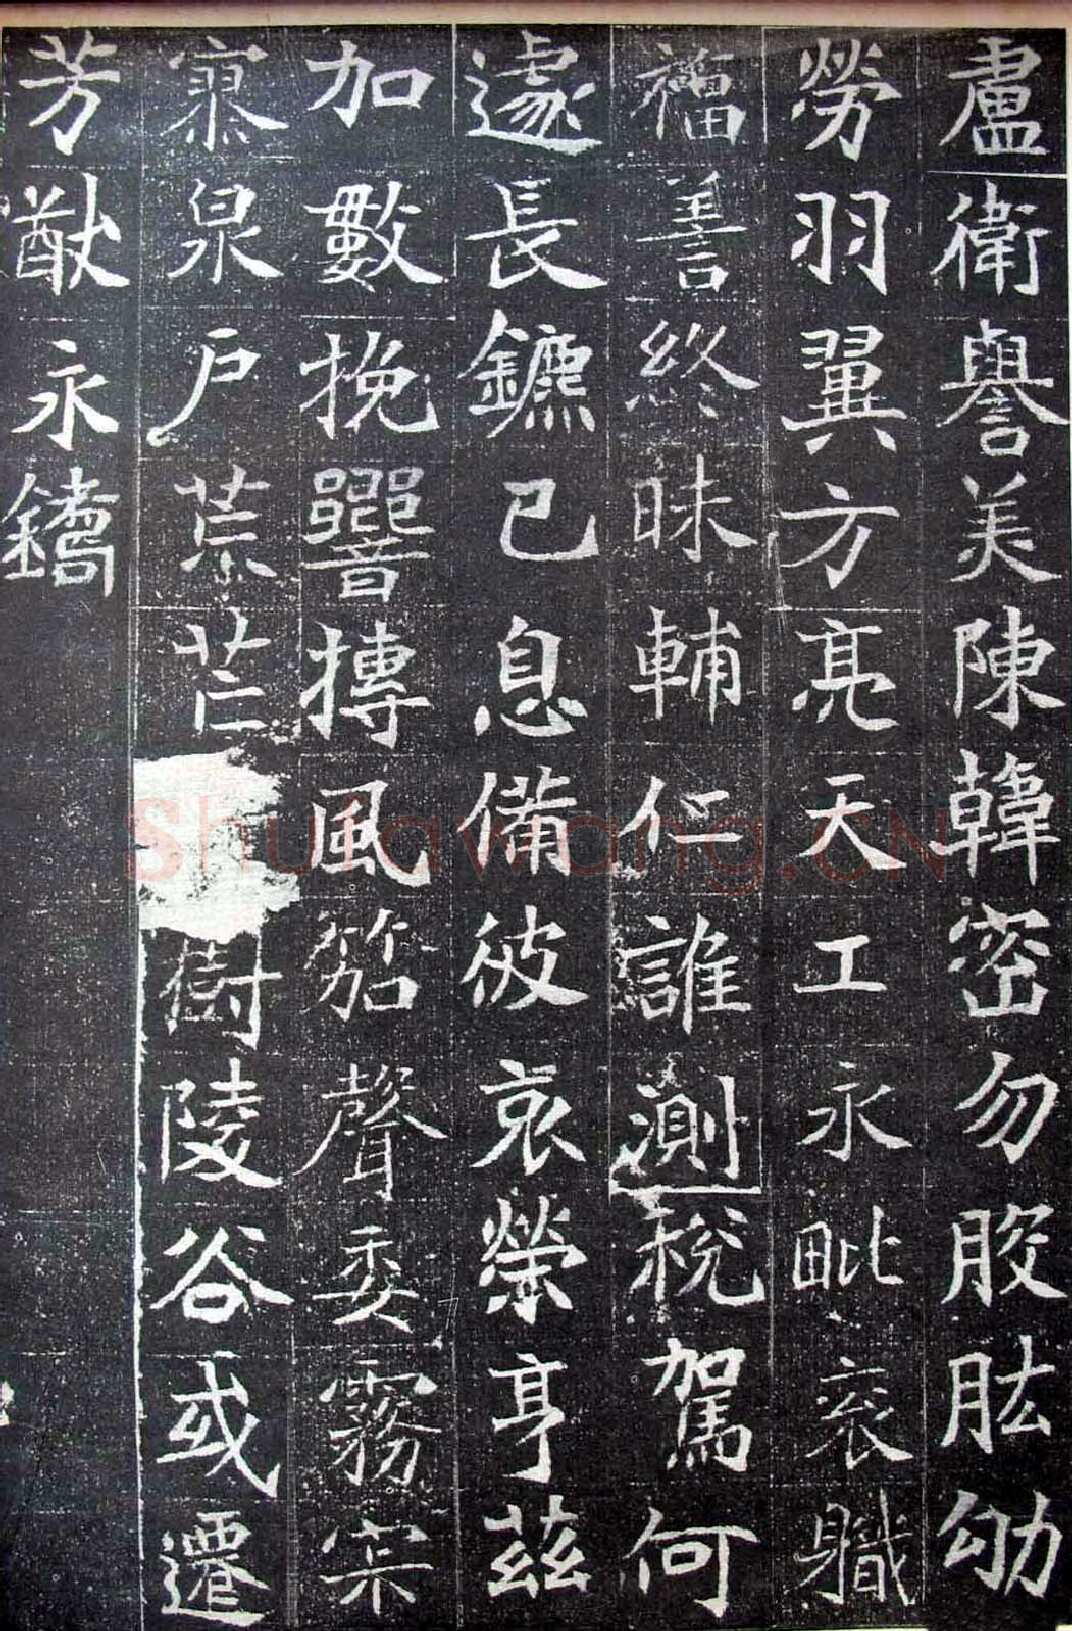 盧衛譽美陳韓密勿股肱劬
勞羽翼方亮天工永毗袞職
福善終昧輔仁誰測稅駕何
遽長鑣已息備彼哀榮亨茲
加數挽響摶風笳聲委霧寂
寥泉戶荒芒樹陵谷或遷
芳猷永鐫
Shufawang.CN